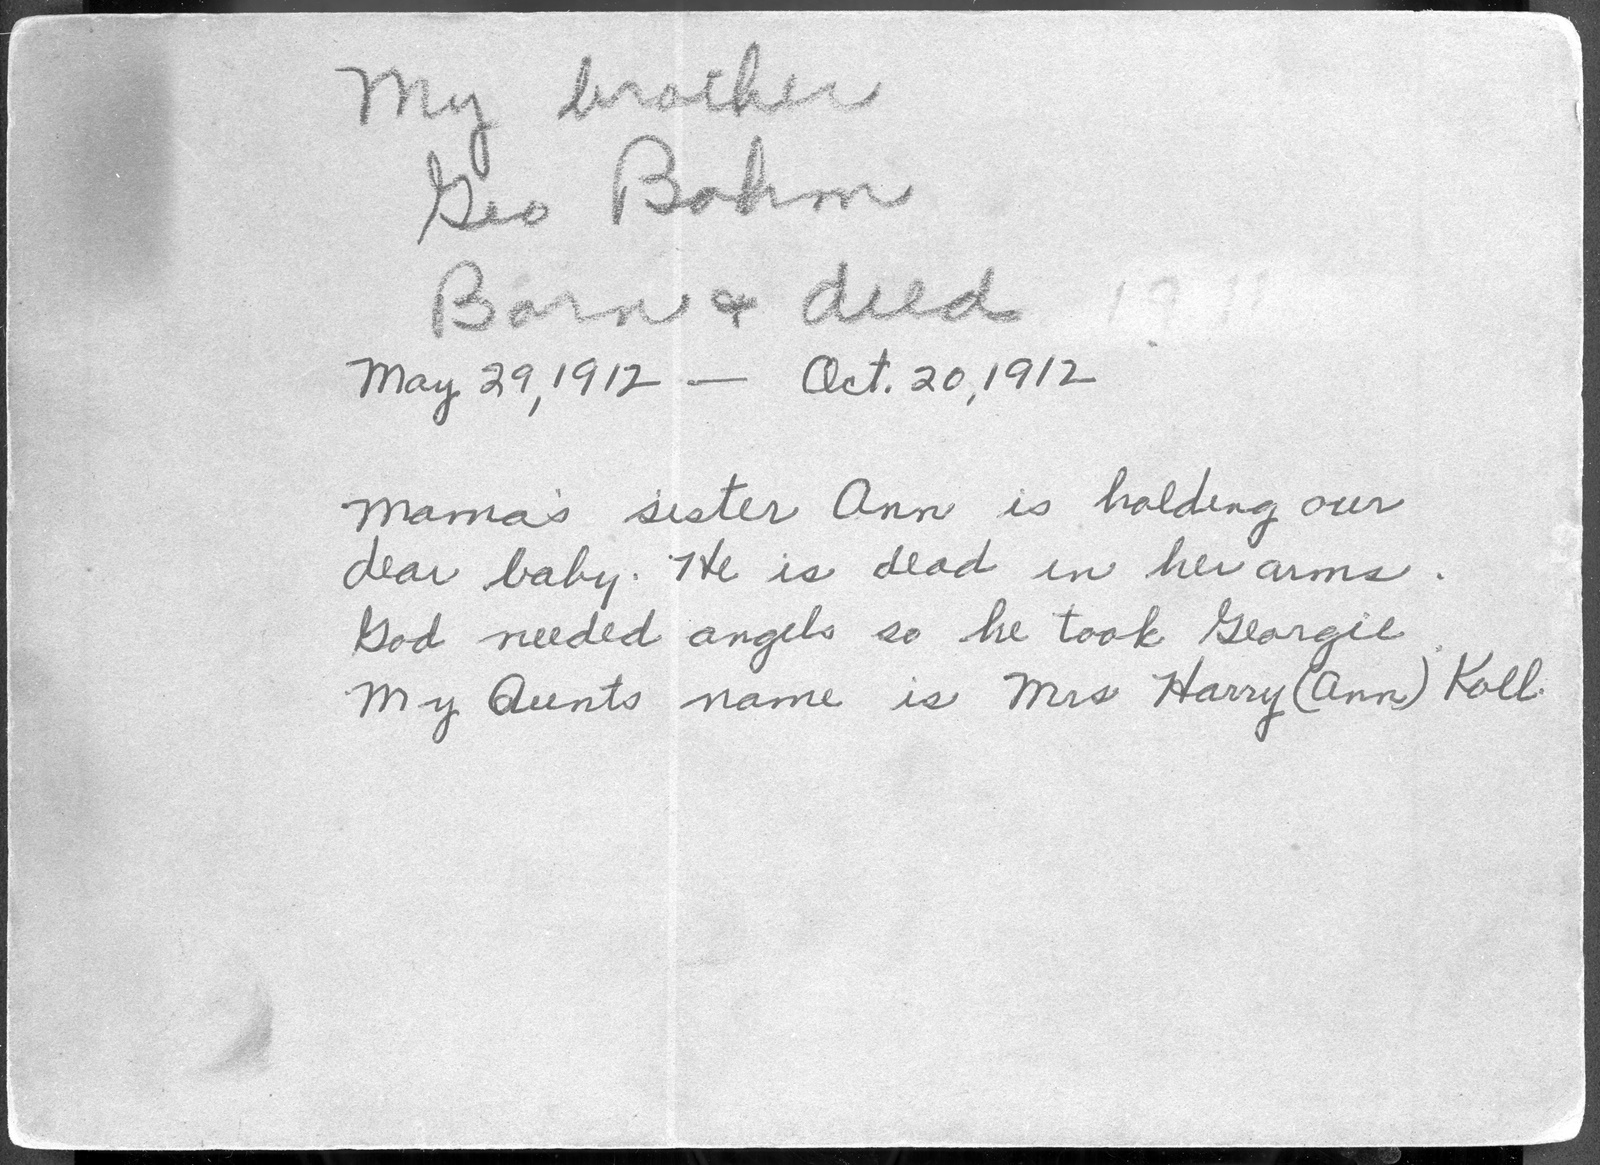 My brother
Geo Bohm
Born & died
May 29, 1912 — Oct. 20, 1912
Mama's sister Ann is holding our
dear baby. He is dead in her arms.
God needed angels so he took Georgie
My Aunts name is Mrs Harry (Ann) Koll.